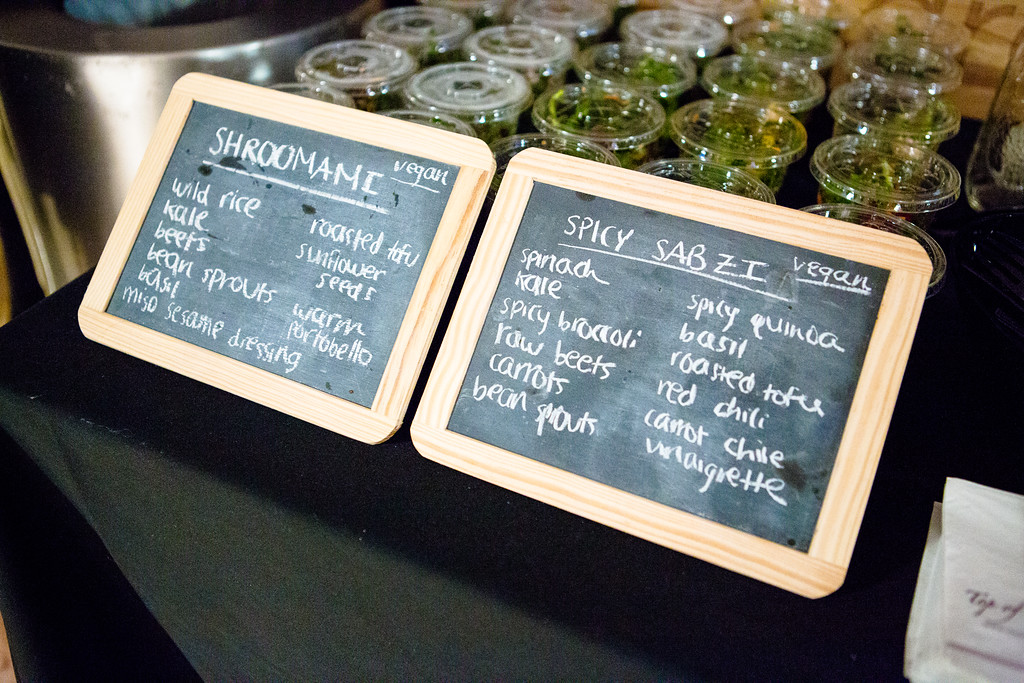 SHROOMAMI
vegan
wild rice
kale
beets
bean sprouts
basil
miso sesame dressing
roasted tofu
sunflower
seeds
warm
portobello
SPICY SABZI
vegan
spinach
kale
spicy broccoli
raw beets
carrots
bean sprouts
spicy quinoa
basil
roasted tofu
red chili
carrot chile
vinaigrette
Top of